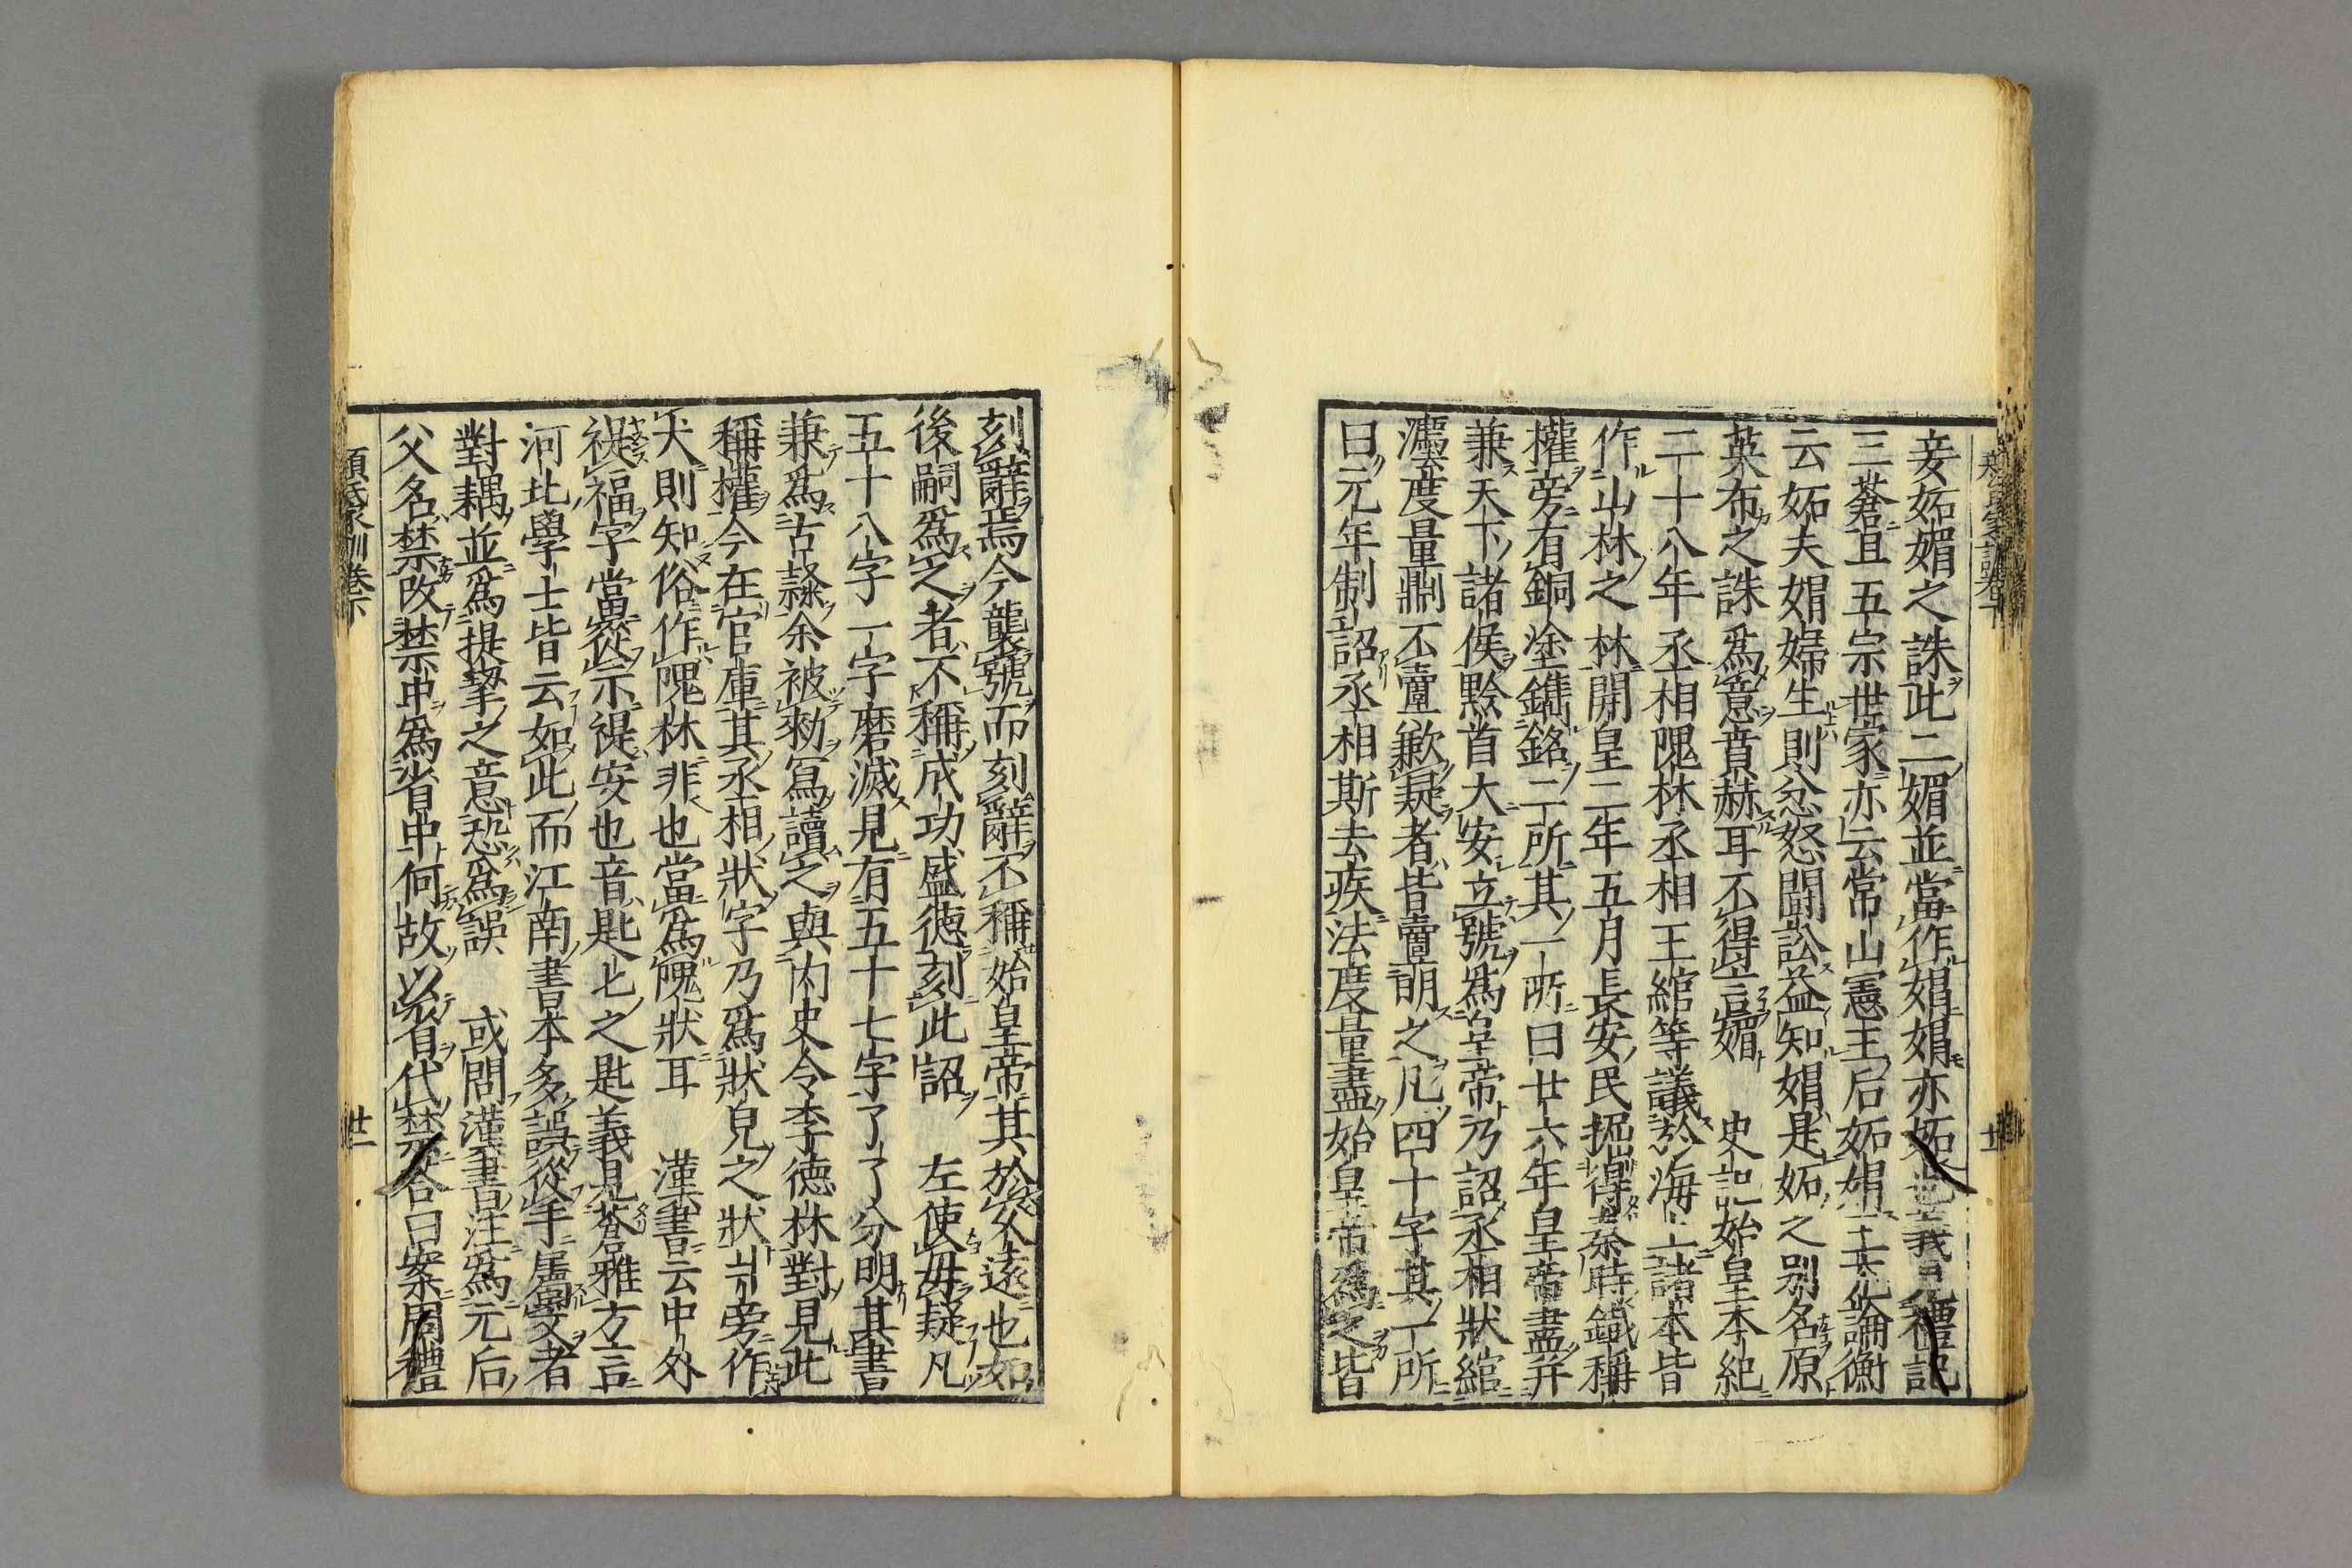 妾妬媚之誅此二媚並當作媢媢亦妬也義見禮記
三蒼且五宗世家亦云常山憲王后妬媢王充論衡
云妬夫媢婦生則忿怒鬪訟益知媢是妬之別名原
英布之誅爲意賁赫耳不得言媚　史記始皇本紀
二十八年丞相隗林丞相王綰等議於海上諸本皆
作山林之林開皇二年五月長安民掘得秦時鐵稱
權旁有銅塗鐫銘二所其一所曰廿六年皇帝盡并
兼天下諸侯黔首大安立號爲皇帝乃詔丞相狀綰
灋度量鼎不壹歉疑者皆壹明之凡四十字其一所
曰元年制詔丞相斯去疾法度量盡始皇帝爲之皆
刻辭焉今襲號而刻辭不稱始皇帝其於久遠也如
後嗣爲之者不稱成功盛德刻此詔　左使毋疑凡
五十八字一字磨滅見有五十七字了了分明其書
兼爲古隷余被勑冩讀之與内史令李德林對見此
稱權今在官庫其丞相狀字乃爲狀皃之狀丬旁作
犬則知俗作隗林非也當爲隗狀耳　漢書云中外
禔福字當從示禔安也音匙匕之匙義見蒼雅方言
河北學士皆云如此而江南書本多誤從手屬文者
對耦並爲提挈之意恐爲誤　或問漢書注爲元后
父名禁改禁中爲省中何故以省代禁荅曰案周禮
顔氏家訓卷下
廿二